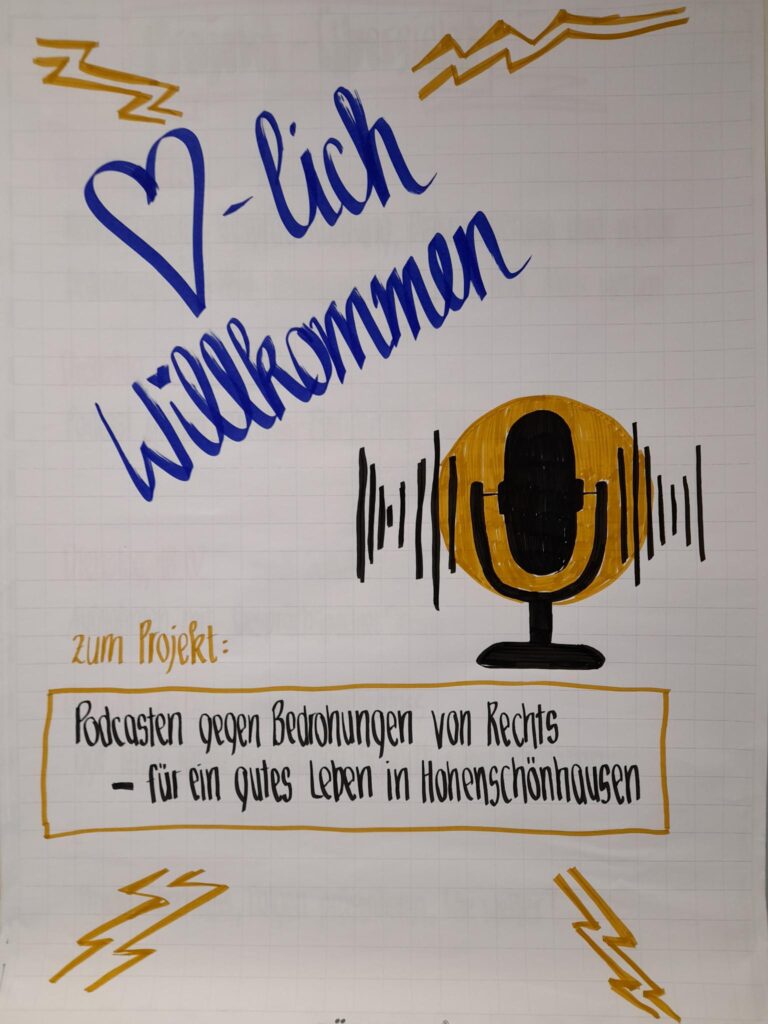 ♡-lich
Willkommen
zum Projekt:
Podcasten gegen Bedrohungen von Rechts
– für ein gutes Leben in Hohenschönhausen